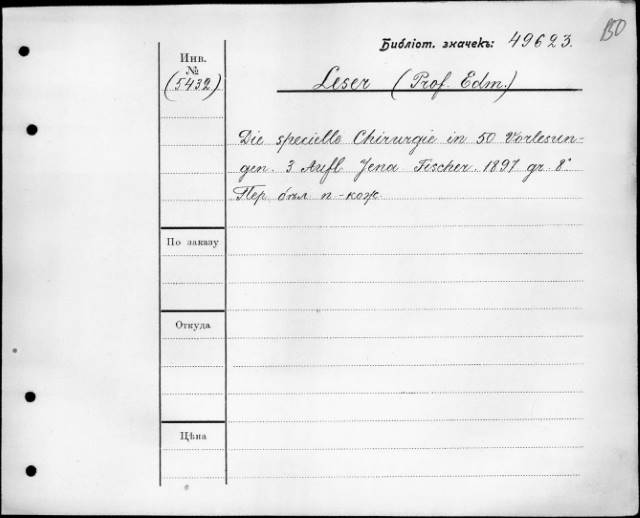 150
Библіот. значекъ: 49623.
Инв.
№
(5432)
Leser (Prof. Edm.)
Die specielle Chirurgie in 50 Vorlesun-
gen. 3 Aufl. Jena Fischer. 1897 gr. 8°
Пер. бѣл. п-кож.
По заказу
Откуда
Цѣна